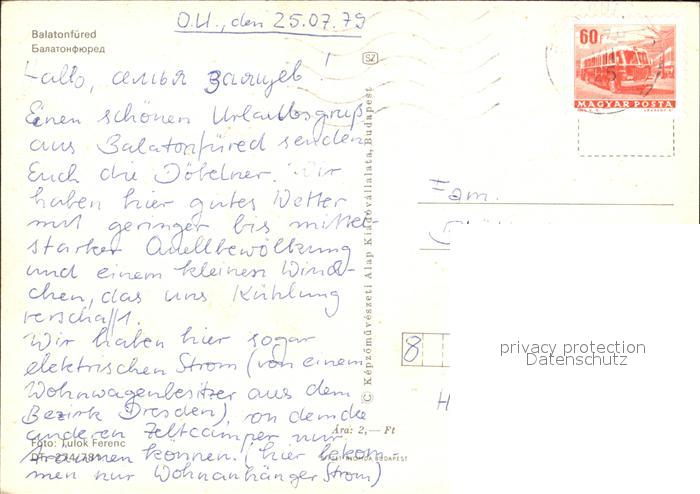 O.U., den 25.07.79
Balatonfüred
Балатонфюред
SZ
60f
MAGYAR POSTA
Hallo, семья Зайцев!
Einen schönen Urlaubsgruß
aus Balatonfüred senden
Euch die Döbelner. Wir
haben hier gutes Wetter
mit geringer bis mittel-
starker Quellbewölkung
und einem kleinen Wind-
chen, das uns Kühlung
verschafft.
Wir haben hier sogar
elektrischen Strom (von einem
Wohnwagenbesitzer aus dem
Bezirk Dresden), von dem die
anderen Zeltcamper nur
träumen können. (hier bekom-
men nur Wohnanhänger Strom)
Foto: Tulok Ferenc
© Képzőművészeti Alap Kiadóvállalata, Budapest
Ára: 2,— Ft
BUDAPEST
Fam.
8
H
privacy protection
Datenschutz